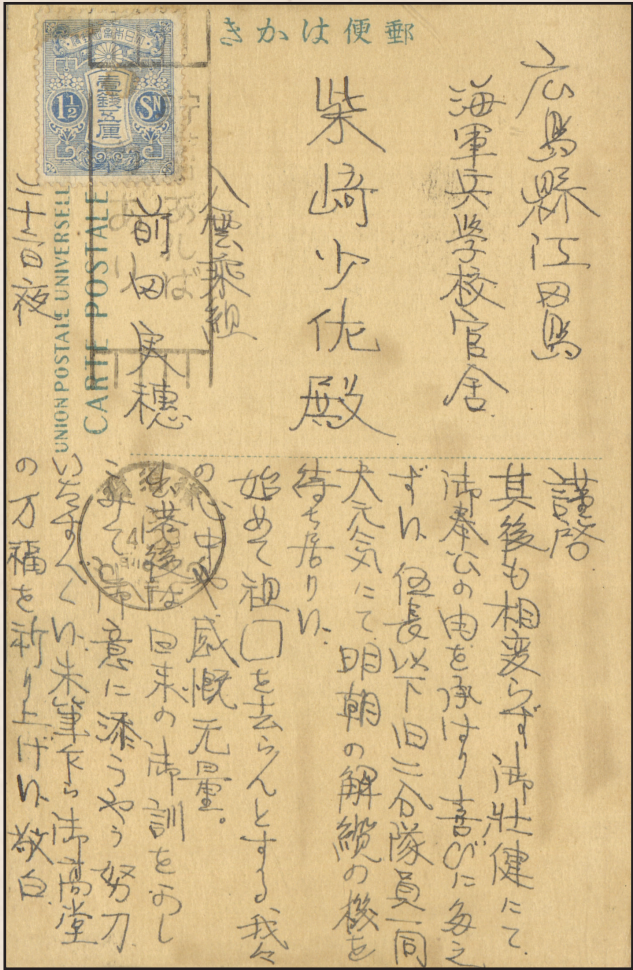 郵便はかき
UNION POSTALE UNIVERSELLE
CARTE POSTALE
壹錢五厘
1½ SN
広島縣江田島
海軍兵学校官舎
柴崎少佐殿
八雲乗組
前田実穂
二十二日夜
謹啓
其後も相変らず御壮健にて
御奉公の由を承はり喜びに多之
ずい伍長以下旧二分隊員一同
大元気にて明朝の解纜の機を
待ち居りい
始めて祖□を去らんとする我々
の心中や感慨无量。
出港後は日来の御訓を
みて御意に添うやう努力
いたすべくい末筆乍ら御高堂
の万福を祈り上げい敬白